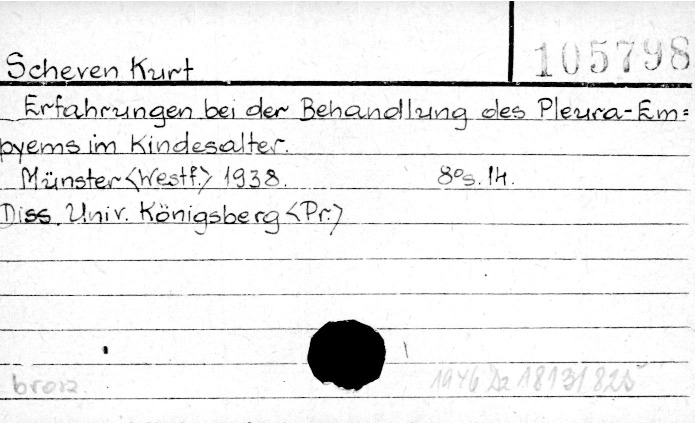 105798
Scheven Kurt
Erfahrungen bei der Behandlung des Pleura-Em=
pyems im Kindesalter.
Münster <Westf.> 1938. 8° s. 14.
Diss. Univ. Königsberg <Pr.>
1946